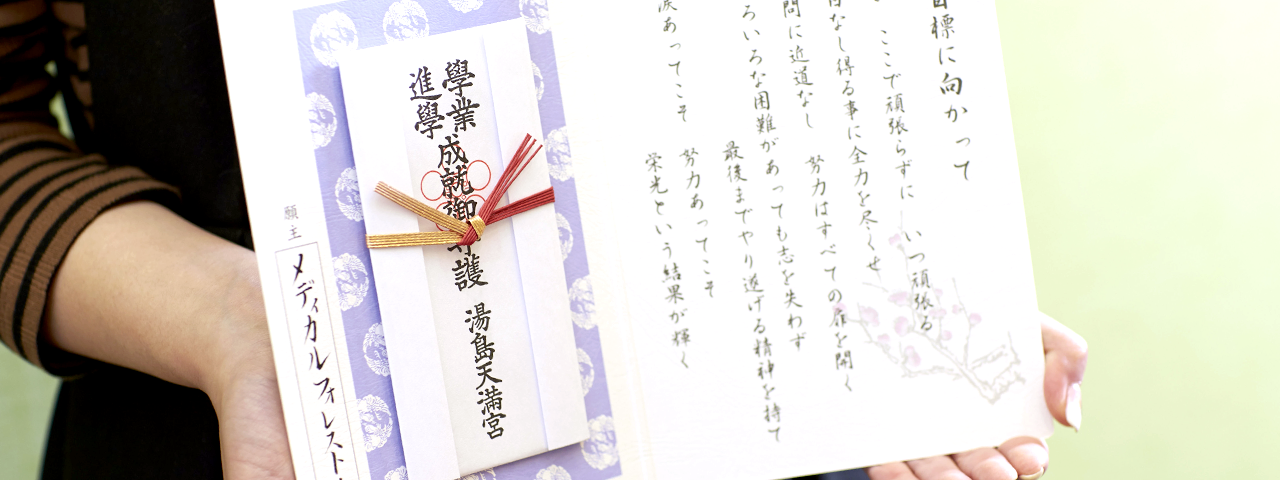 目標に向かって
ここで頑張らずに いつ頑張る
日なし得る事に全力を尽くせ
問に近道なし 努力はすべての扉を開く
ろいろな困難があっても志を失わず
最後までやり遂げる精神を持て
涙あってこそ 努力あってこそ
栄光という結果が輝く
學業
進學
成就御守護 湯島天満宮
願主
メディカルフォレスト